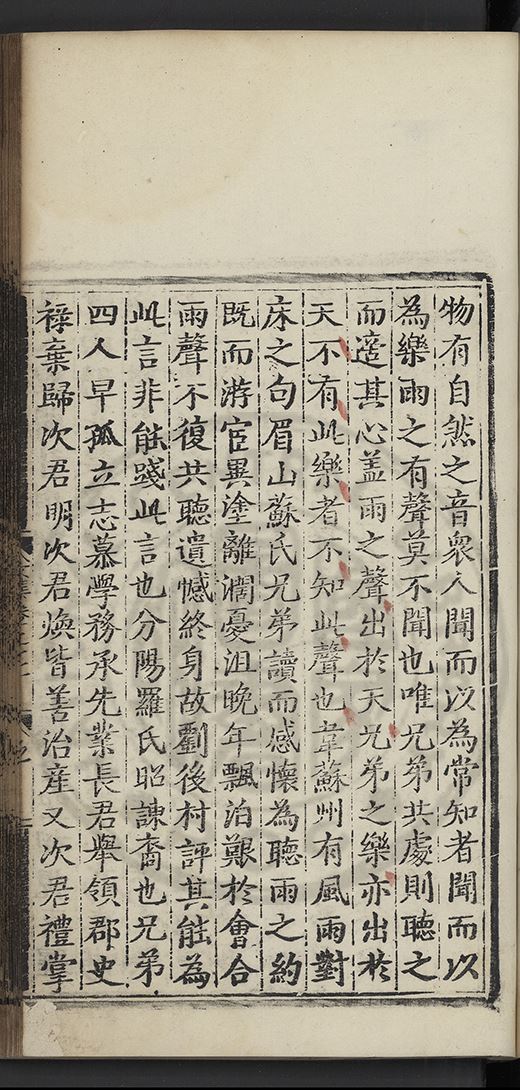 物有自然之音衆人聞而以為常知者聞而以
為樂雨之有聲莫不聞也唯兄弟共處則聽之
而適其心盖雨之聲出於天兄弟之樂亦出於
天不有此樂者不知此聲也韋蘇州有風雨對
床之句眉山蘇氏兄弟讀而感懷為聽雨之約
既而游宦異塗離濶憂沮晚年飄泊艱於會合
雨聲不復共聽遺憾終身故劉後村評其能為
此言非能踐此言也分陽羅氏昭諫裔也兄弟
四人早孤立志慕學務承先業長君舉領郡史
祿棄歸次君明次君煥皆善治産又次君禮掌